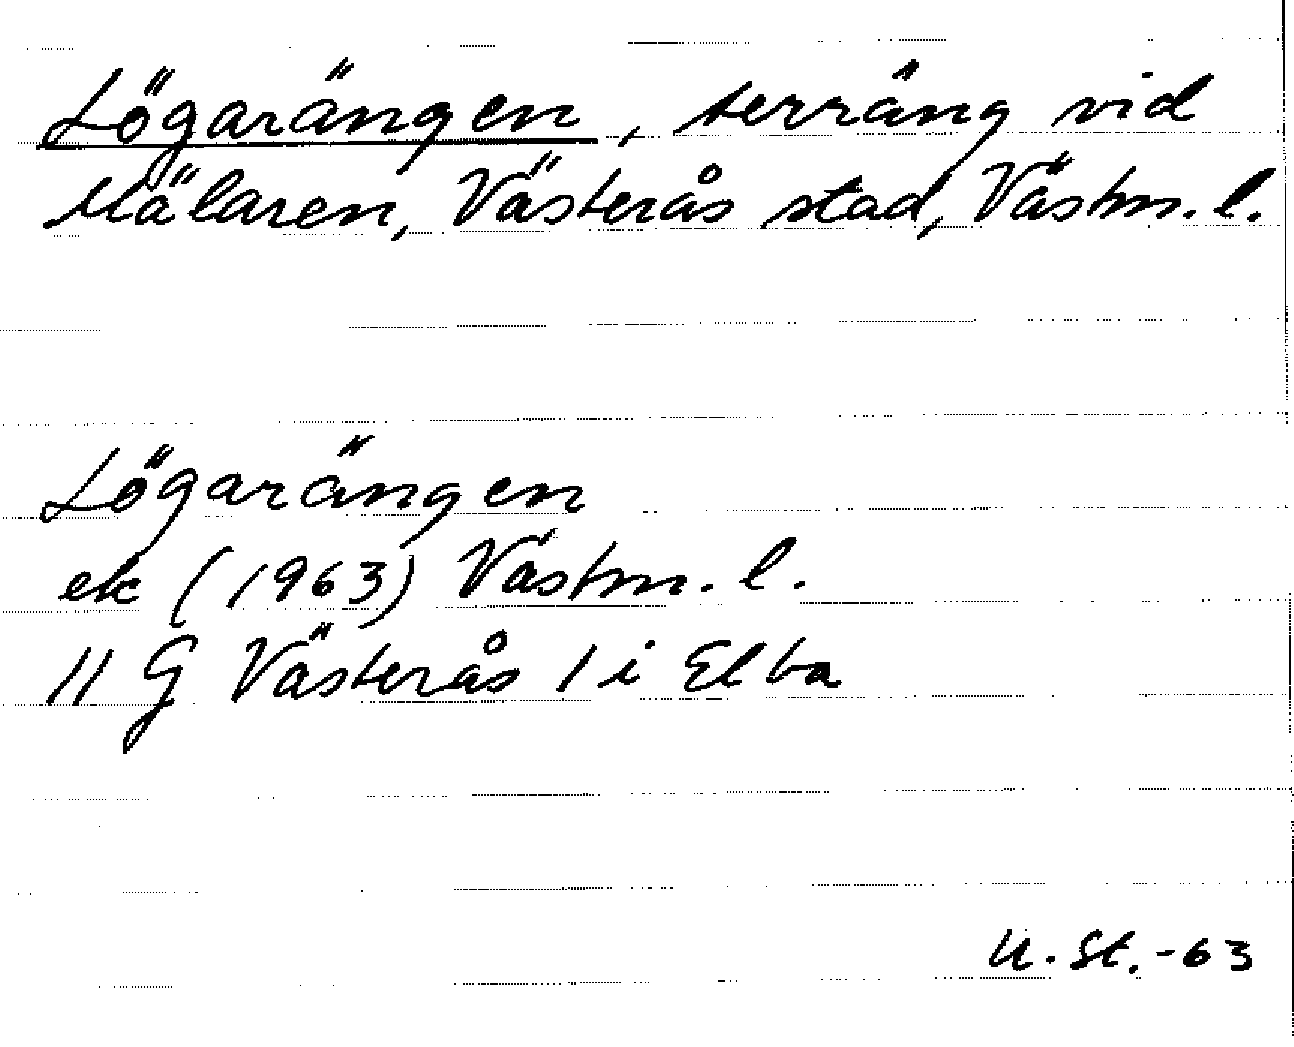 Lögarängen, terräng vid
Mälaren, Västerås stad, Västm. l.
Lögarängen
ek (1963) Västm. l.
11 G Västerås 1 i Elba
U. St. -63